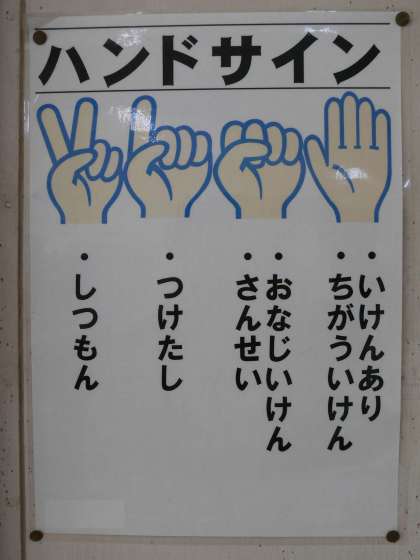 ハンドサイン
・いけんあり
・ちがういけん
・おなじいけん
・さんせい
・つけたし
・しつもん